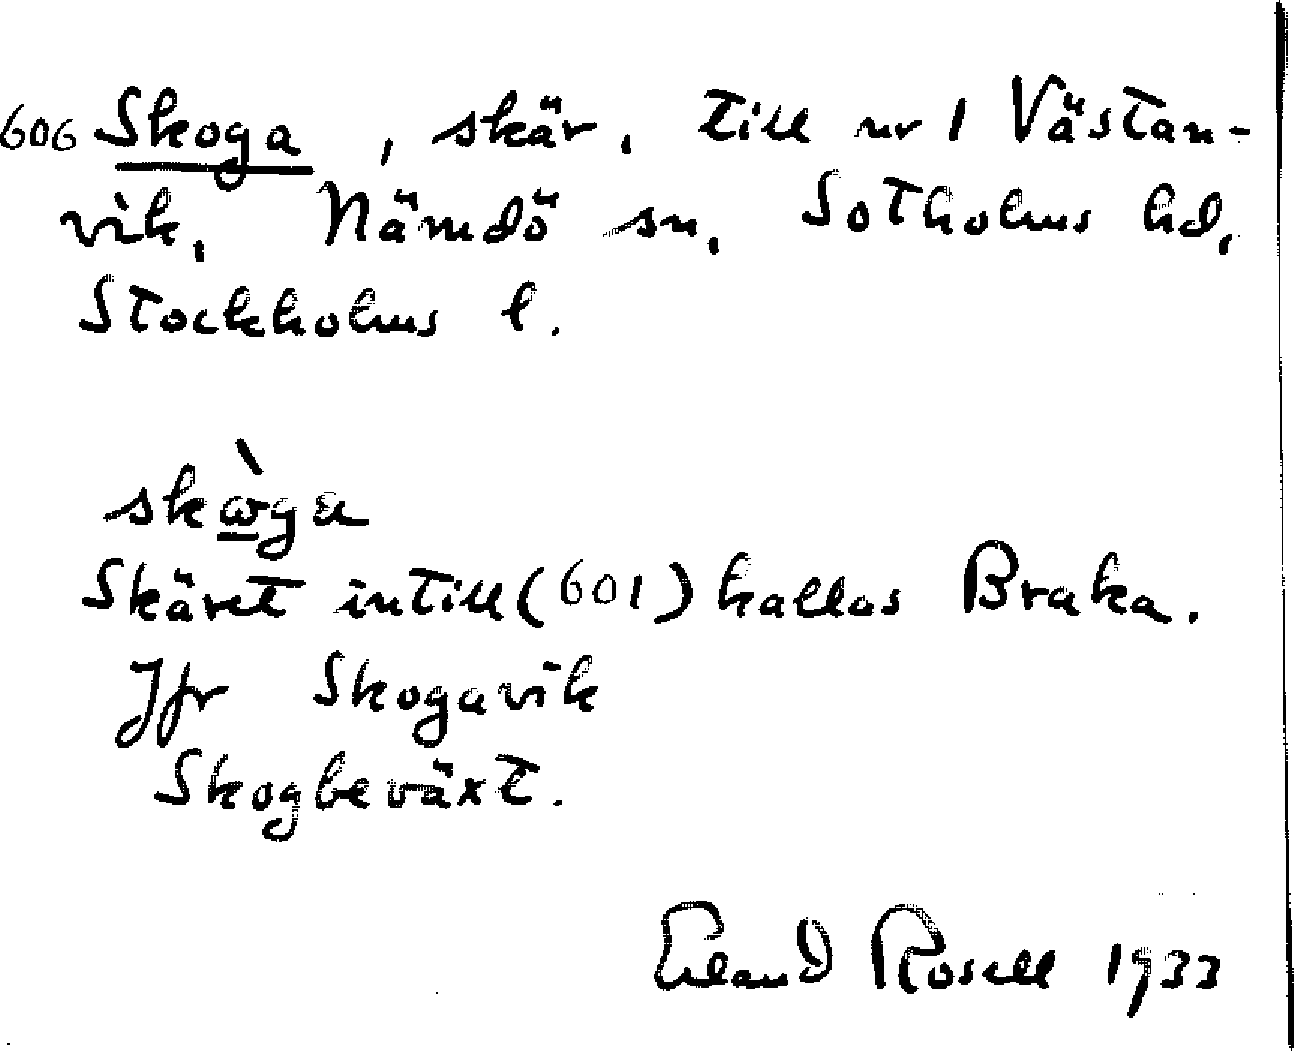 606 Skoga, skär, till nr 1 Västan-
vik, Nämdö sn, Sotholms hd,
Stockholms l.
skὼga
Skäret intill (601) kallas Braka.
Jfr Skogavik
Skogbeväxt.
Erland Rosell 1933